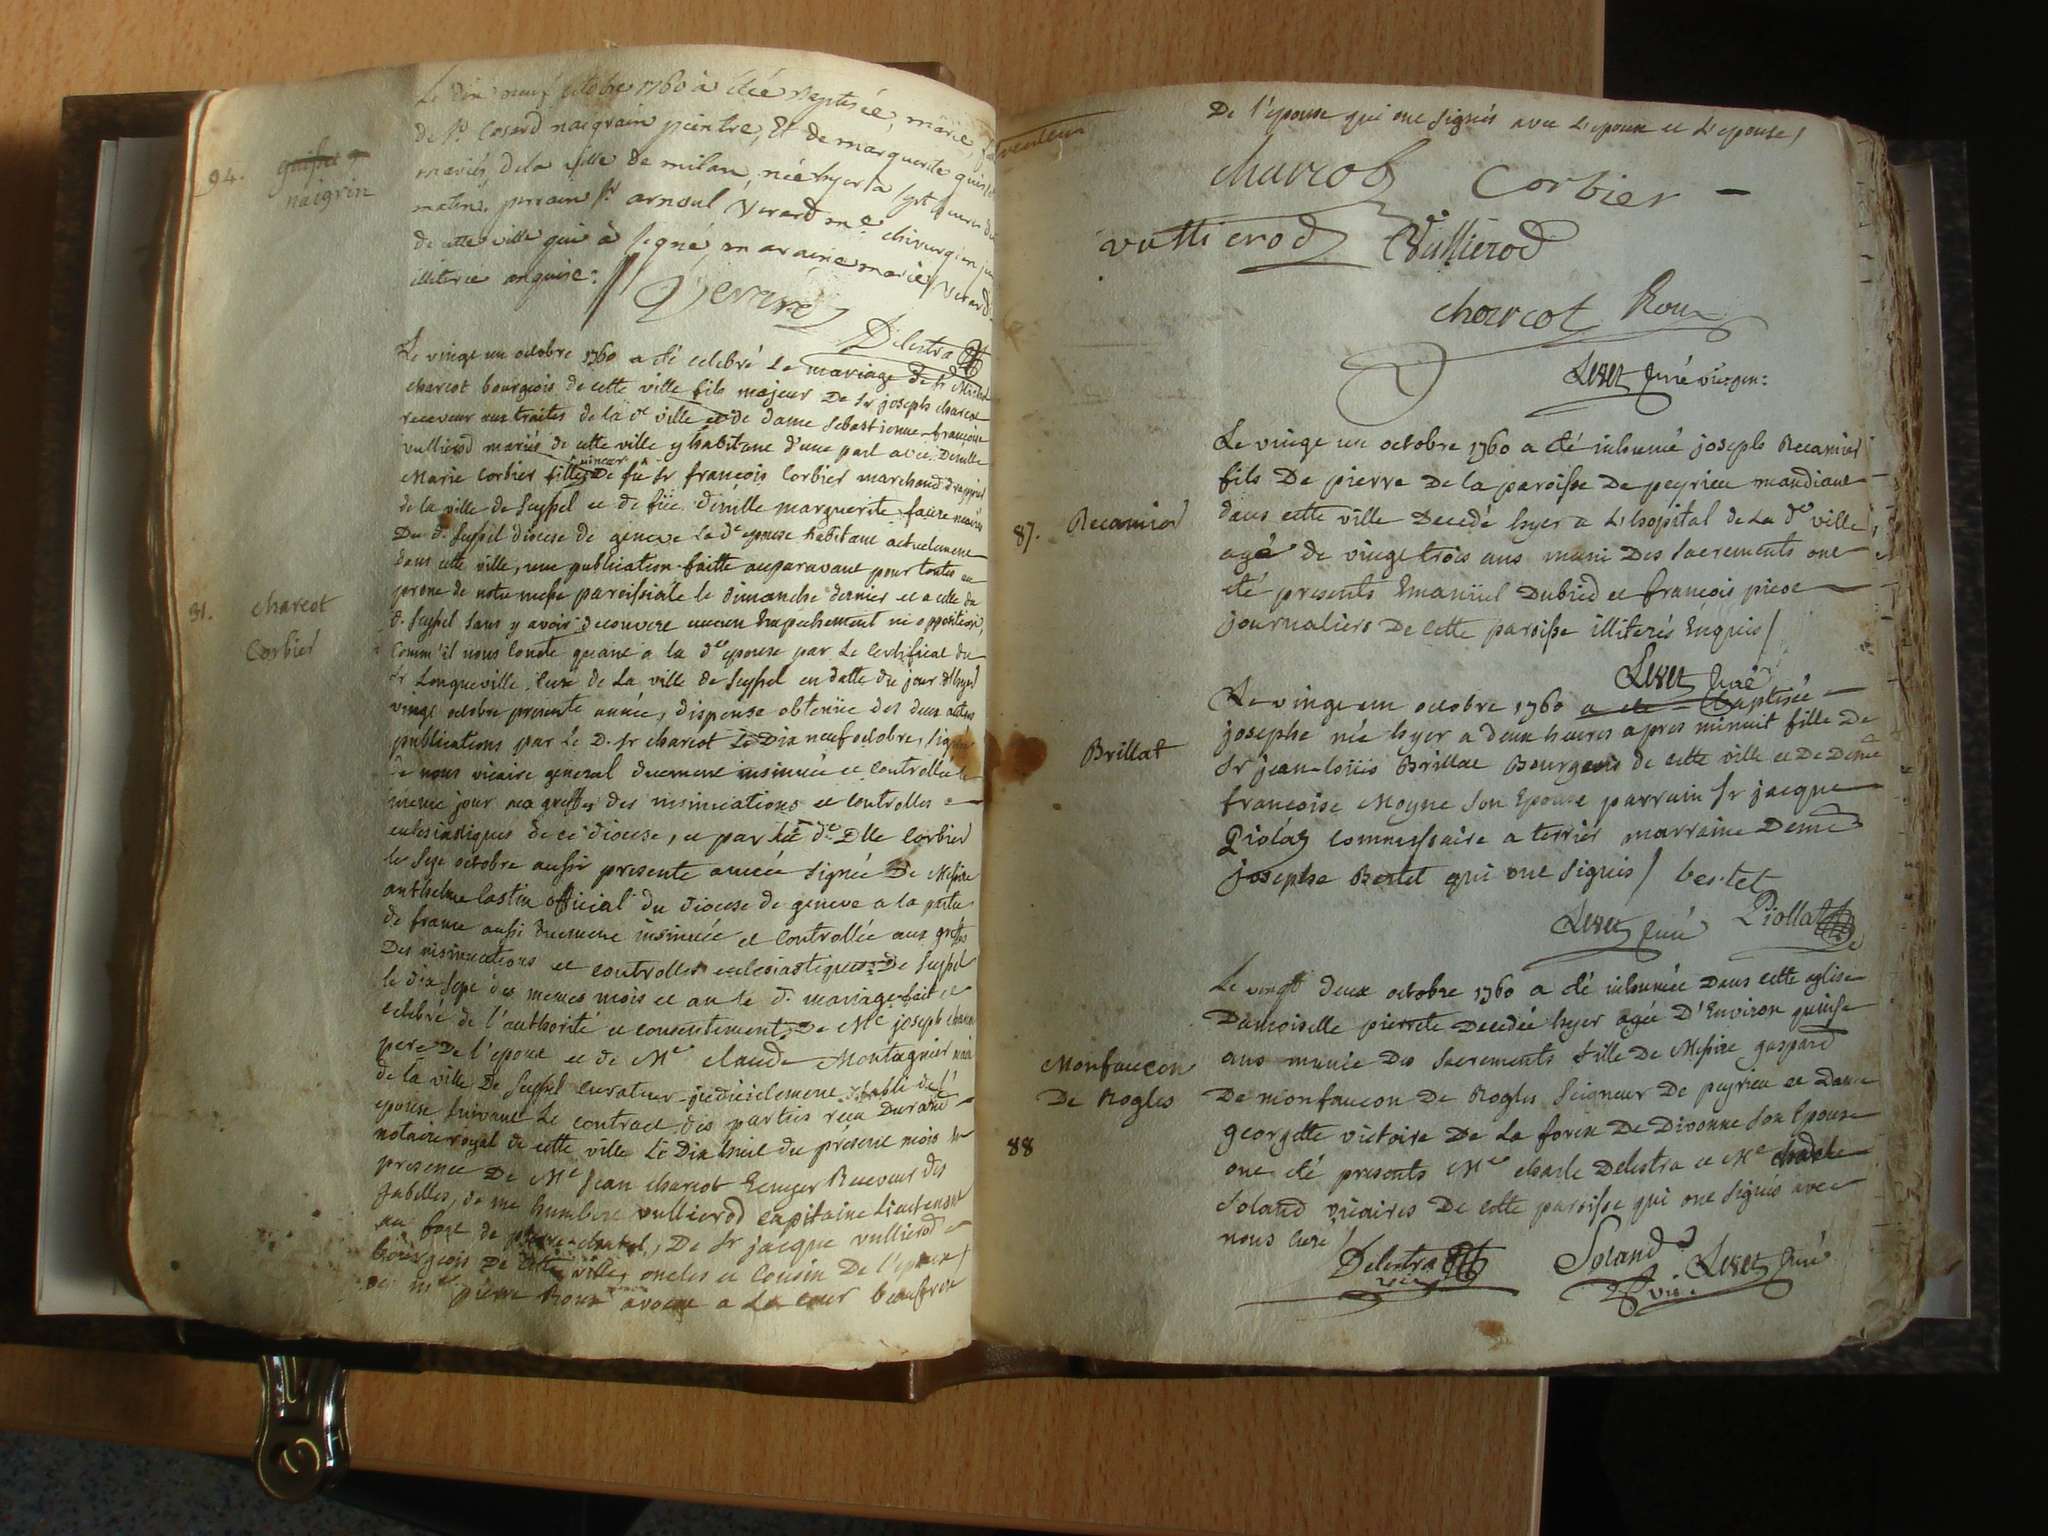 94.
naigrin
Le dix neuf octobre 1760 a été Baptisée, marie, fille
de Sr Cesard naigrain peintre, Et de marguerite
mariés de la ville de milan, née hyer a sept heures du
matin, parrain Sr arnoul Verard me chirurgien
de cette ville qui à signé, maraine marie Verard
illiterée enquise:
Delestra
31. Charcot
Corbier
Le vingt un octobre 1760 a été celebré Le mariage de Sr Michel
charcot bourgeois de cette ville fils majeur De Sr joseph charcot
receveur aux traites de la de ville et de dame Sebastienne françoise
vullierod mariés de cette ville y habitant d'une part avec Demlle
Marie Corbier fille mineure De fu Sr françois Corbier marchand drappier
de la ville de Seyssel et de füe Dmlle marguerite faure mariés
Du d. Seyssel diocese de geneve La de epouse habitant actuelement
dans cette ville, une publication faitte auparavant pour toutes au
prone de notre messe paroissiale le dimanche dernier et a celle du
d. Seyssel sans y avoir decouvert aucun Empechement ni opposition,
Comm'il nous conste quant a la de epouse par Le Certificat du
Sr Longueville, Curé de La ville de Seyssel en datte du jour d'hyer
vingt octobre presente année, dispense obtenüe des deux autres
publications par Le D. Sr charcot Le Dix neuf octobre, signée
De nous vicaire general duement insinuée et Controllée le
meme jour aux greffes des insinuations et controlles
eclesiastiques de ce diocese, et par la de Dlle Corbier
le Sept octobre aussi presente année signée De Messire
anthelme Castin official du diocese de geneve a la partie
de france aussi Duement insinuée et Controllée aux greffes
Des insinuations et controlles eclesiastiques De Seyssel
le dix sept des memes mois et an le d. mariage fait et
celebré de l'authorité et consentement De Me joseph charcot
pere De l'epoux et de Me claude Montagnier
de la ville De Seyssel curateur judicielement etabli de l'
epouse suivant Le contract des parties reçu Durand
notaire royal de cette ville Le Dix huit du présent mois en
presence De Me Jean charcot Ecuyer Receveur des
gabelles, de me humbert vullierod Capitaine Lieutenant
au fort de pierre-chatel, De Sr jacque vullierod
bourgeois De cette ville oncles et Cousin De l'epoux
de me pierre Roux avocat a La cour beaufrere
De l'epouse qui ont signés avec L'epoux et L'epouse /
charcot Corbier
vullierod Vullierod
charcot Roux
Levet Curé
87. Recamier
Le vingt un octobre 1760 a été inhumé joseph Recamier
fils De pierre De la paroisse De peyrieu mandiant
dans cette ville Decedé hyer a L'hopital de La de ville,
agé de vingt trois ans muni Des Sacrements ont
été presents Emanüel Dubied et françois picot
journaliers De Cette paroisse illiterés Enquis /
Levet Curé
Brillat
Le vingt un octobre 1760 a été Baptisée
josephe née hyer a deux heures apres minuit fille De
Sr jean-loüis Brillat Bourgeois de cette ville et De Deme
françoise Moyne son Epouse parrain Sr jacque
Piolaz Commissaire a terrier marraine Deme
josephe Bertet qui ont signés / bertet
Levet Curé Piollat
Monfaucon
De Rogles
88
Le vingt deux octobre 1760 a été inhumée Dans cette eglise
Damoiselle pierrete Decedée hyer agée D'Environ quinse
ans munie Des Sacrements fille De Messire gaspard
De monfaucon De Rogles Seigneur De peyrieu et Dame
georgette victoire De La forest De Divonne Son Epouse
ont été presents Me charle Delestra et Me charle
Soland vicaires De cette paroisse qui ont signés avec
nous Curé /
Delestra vic. Soland vic. Levet Curé